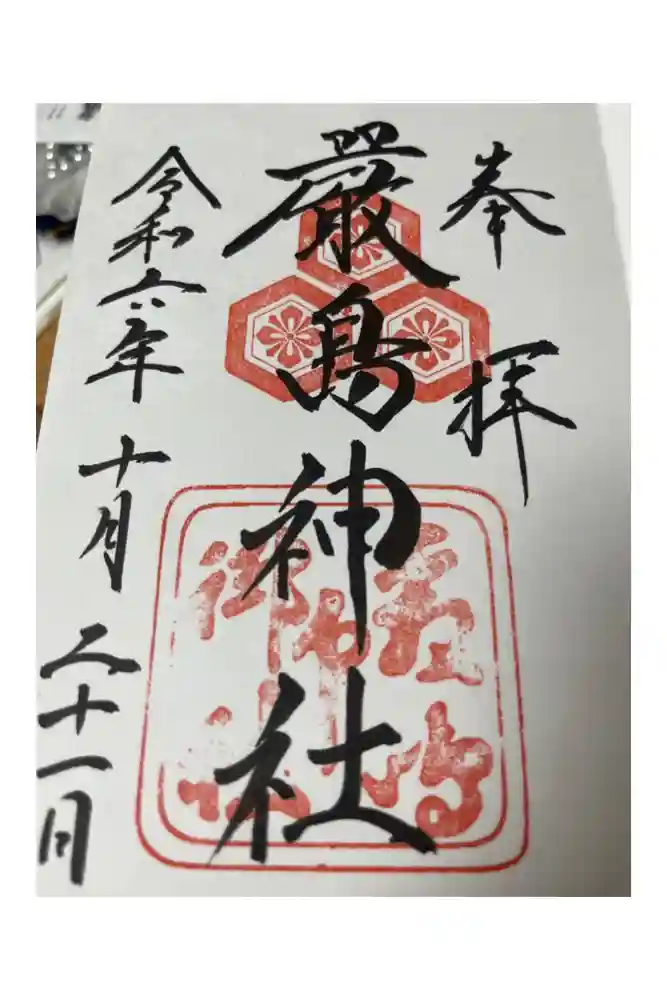 奉拝
嚴島神社
令和六年十月二十一日